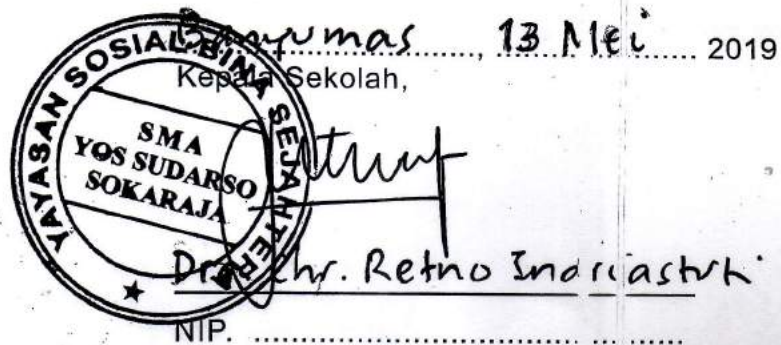 Banyumas, 13 Mei 2019
Kepala Sekolah,
YAYASAN SOSIAL BINA SEJAHTERA
SMA
YOS SUDARSO
SOKARAJA
Dra. Chr. Retno Indriastuti
NIP. ........................................